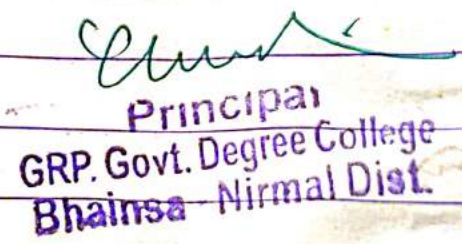 Principal
GRP. Govt. Degree College
Bhainsa - Nirmal Dist.